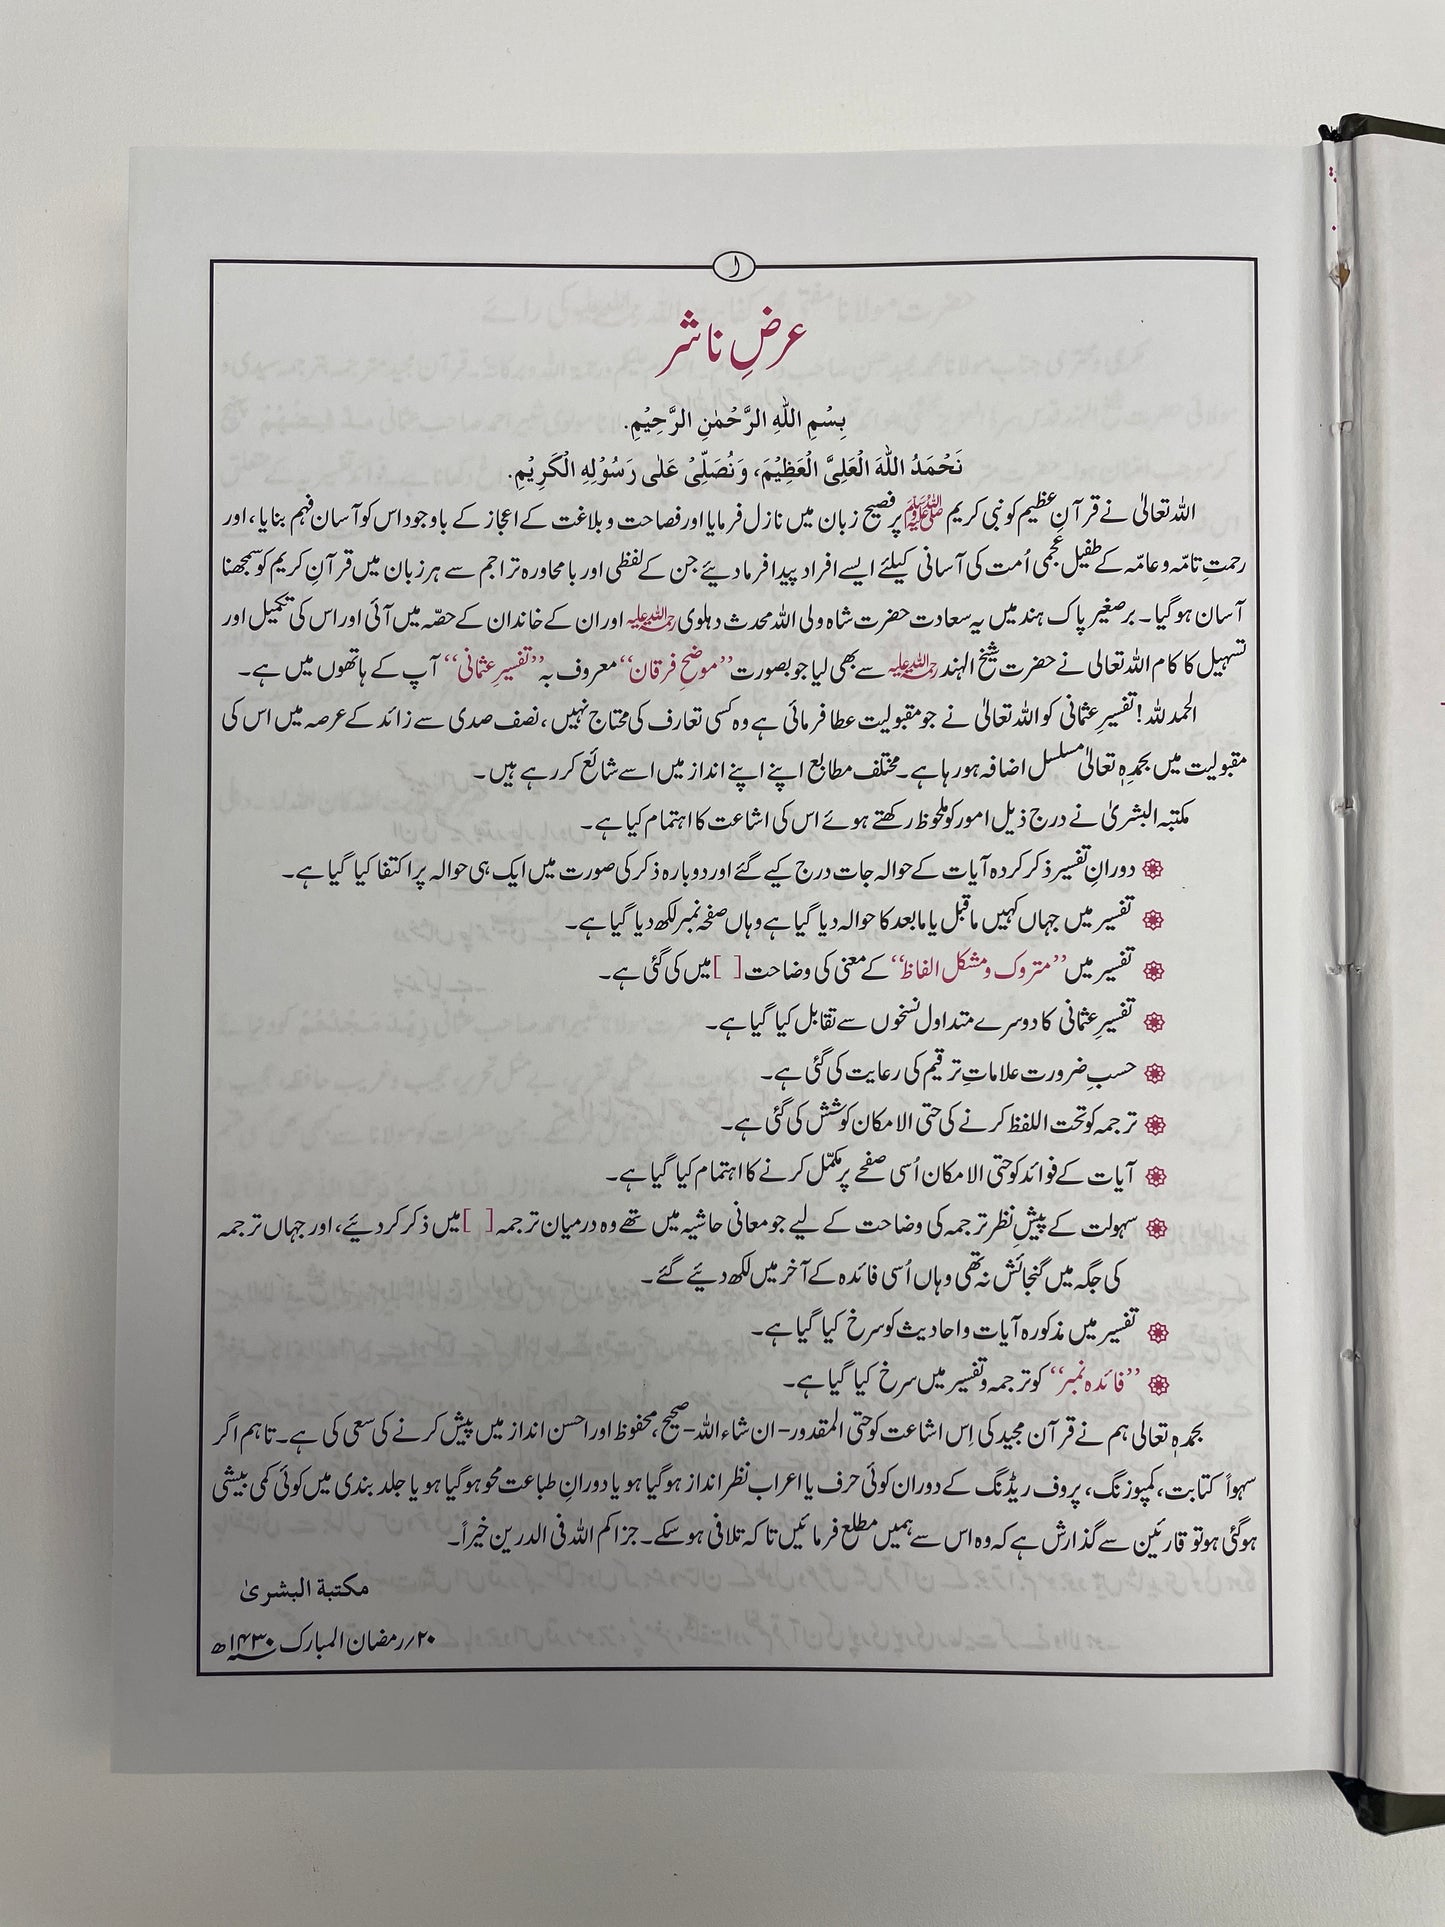 ا
عرضِ ناشر
بِسْمِ اللهِ الرَّحْمٰنِ الرَّحِيْمِ.
نَحْمَدُ اللهَ الْعَلِيَّ الْعَظِيْمَ، وَنُصَلِّيْ عَلٰى رَسُوْلِهِ الْكَرِيْمِ.
اللہ تعالیٰ نے قرآنِ عظیم کو نبی کریم ﷺ پر فصیح زبان میں نازل فرمایا اور فصاحت و بلاغت کے اعجاز کے باوجود اس کو آسان فہم بنایا، اور
رحمتِ تامّہ و عامّہ کے طفیل عجمی اُمت کی آسانی کیلئے ایسے افراد پیدا فرما دیئے جن کے لفظی اور بامحاورہ تراجم سے ہر زبان میں قرآنِ کریم کو سمجھنا
آسان ہوگیا۔ برصغیر پاک ہند میں یہ سعادت حضرت شاہ ولی اللہ محدث دہلوی رحمۃ اللہ علیہ اور ان کے خاندان کے حصّہ میں آئی اور اس کی تکمیل اور
تسہیل کا کام اللہ تعالی نے حضرت شیخ الہند رحمۃ اللہ علیہ سے بھی لیا جو بصورت ”موضح فرقان“ معروف بہ ”تفسیرِ عثمانی“ آپ کے ہاتھوں میں ہے۔
الحمد للہ! تفسیرِ عثمانی کو اللہ تعالیٰ نے جو مقبولیت عطا فرمائی ہے وہ کسی تعارف کی محتاج نہیں، نصف صدی سے زائد کے عرصہ میں اس کی
مقبولیت میں بحمدہٖ تعالیٰ مسلسل اضافہ ہو رہا ہے۔ مختلف مطابع اپنے اپنے انداز میں اسے شائع کر رہے ہیں۔
مکتبہ البشریٰ نے درج ذیل امور کو ملحوظ رکھتے ہوئے اس کی اشاعت کا اہتمام کیا ہے۔
دورانِ تفسیر ذکر کردہ آیات کے حوالہ جات درج کیے گئے اور دوبارہ ذکر کی صورت میں ایک ہی حوالہ پر اکتفا کیا گیا ہے۔
تفسیر میں جہاں کہیں ماقبل یا مابعد کا حوالہ دیا گیا ہے وہاں صفحہ نمبر لکھ دیا گیا ہے۔
تفسیر میں ”متروک و مشکل الفاظ“ کے معنی کی وضاحت [ ] میں کی گئی ہے۔
تفسیرِ عثمانی کا دوسرے متداول نسخوں سے تقابل کیا گیا ہے۔
حسبِ ضرورت علاماتِ ترقیم کی رعایت کی گئی ہے۔
ترجمہ کو تحت اللفظ کرنے کی حتی الامکان کوشش کی گئی ہے۔
آیات کے فوائد کو حتی الامکان اُسی صفحے پر مکمّل کرنے کا اہتمام کیا گیا ہے۔
سہولت کے پیشِ نظر ترجمہ کی وضاحت کے لیے جو معانی حاشیہ میں تھے وہ درمیان ترجمہ [ ] میں ذکر کر دیئے، اور جہاں ترجمہ
کی جگہ میں گنجائش نہ تھی وہاں اُسی فائدہ کے آخر میں لکھ دیئے گئے۔
تفسیر میں مذکورہ آیات و احادیث کو سرخ کیا گیا ہے۔
”فائدہ نمبر“ کو ترجمہ و تفسیر میں سرخ کیا گیا ہے۔
بحمدہٖ تعالی ہم نے قرآن مجید کی اِس اشاعت کو حتی المقدور- ان شاء اللہ- صحیح، محفوظ اور احسن انداز میں پیش کرنے کی سعی کی ہے۔ تاہم اگر
سہواً کتابت، کمپوزنگ، پروف ریڈنگ کے دوران کوئی حرف یا اعراب نظر انداز ہوگیا ہو یا دورانِ طباعت محو ہوگیا ہو یا جلد بندی میں کوئی کمی بیشی
ہوگئی ہو تو قارئین سے گذارش ہے کہ وہ اس سے ہمیں مطلع فرمائیں تاکہ تلافی ہوسکے۔ جزاکم اللہ فی الدرین خیراً۔
مکتبة البشریٰ
۲۰؍رمضان المبارک ۱۴۳۰ھ